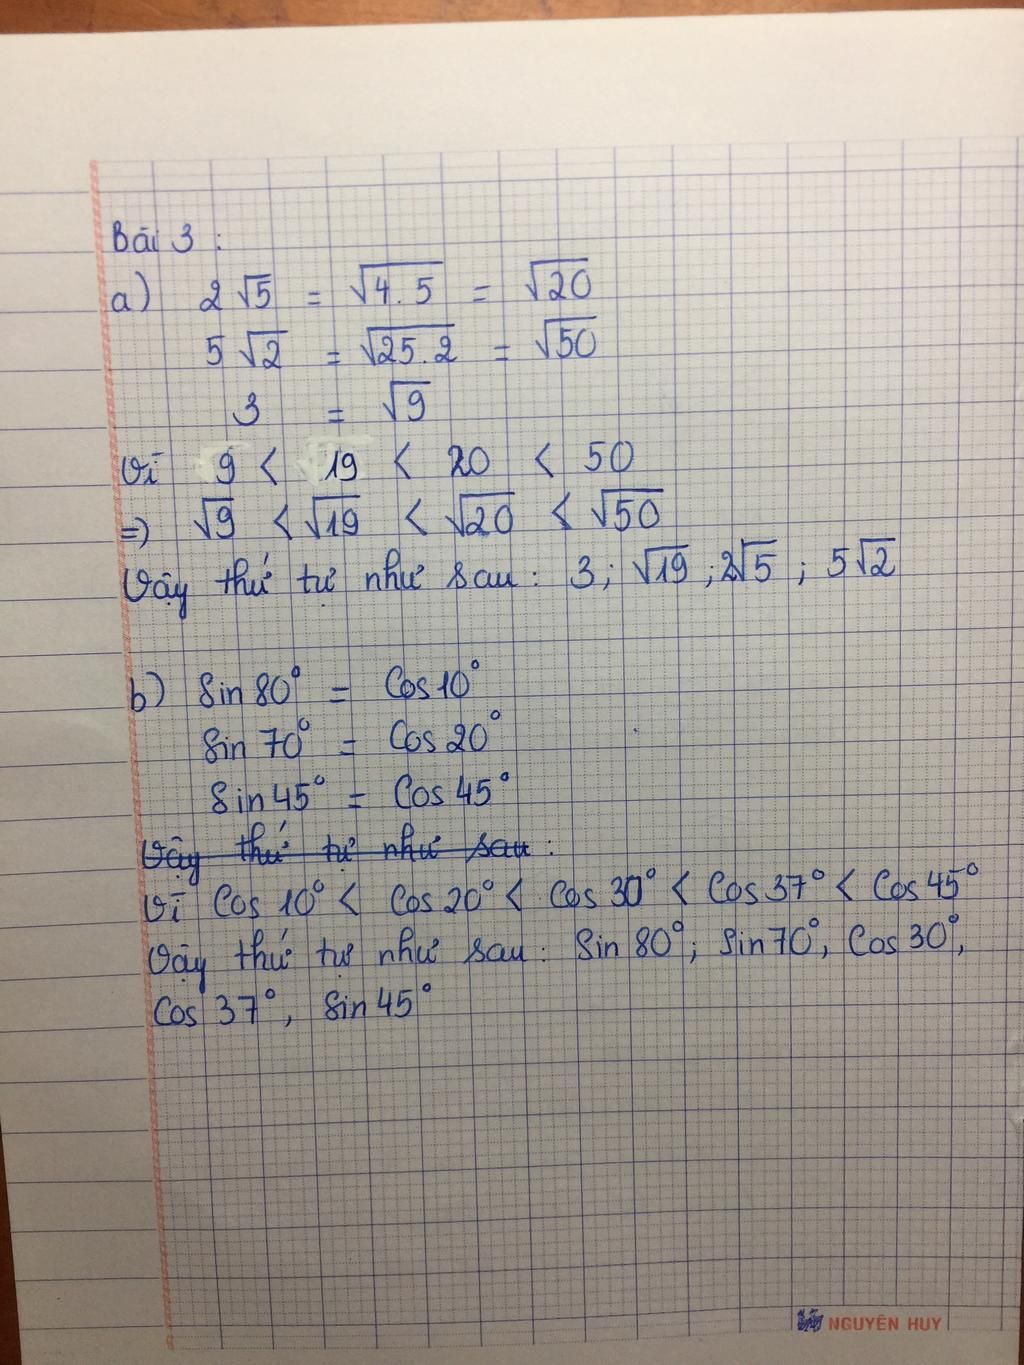 Bài 3 :
a) 2√5 = √4.5 = √20
5√2 = √25.2 = √50
3 = √9
Vì 9 < 19 < 20 < 50
=) √9 < √19 < √20 < √50
Vậy thứ tự như sau : 3; √19 ; 2√5 ; 5√2
b) Sin 80° = Cos 10°
Sin 70° = Cos 20°
Sin 45° = Cos 45°
Vậy thứ tự như sau :
Vì Cos 10° < Cos 20° < Cos 30° < Cos 37° < Cos 45°
Vậy thứ tự như sau : Sin 80°; Sin 70°, Cos 30°,
Cos 37°, Sin 45°
NGUYÊN HUY